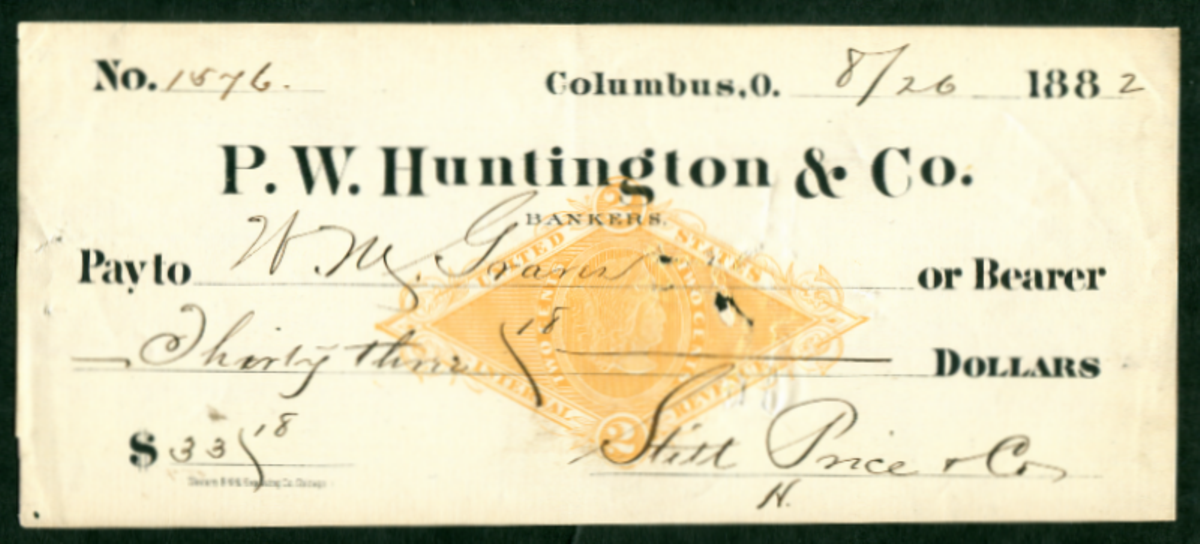 No. 1576. Columbus, O. 8/26 1882
P. W. Huntington & Co.
BANKERS.
Pay to W. M. or Bearer
Thirty three 18 DOLLARS
$ 33 18
Still Price & Co
H.
UNITED STATES
INTERNAL REVENUE
TWO DOLLARS
2
2